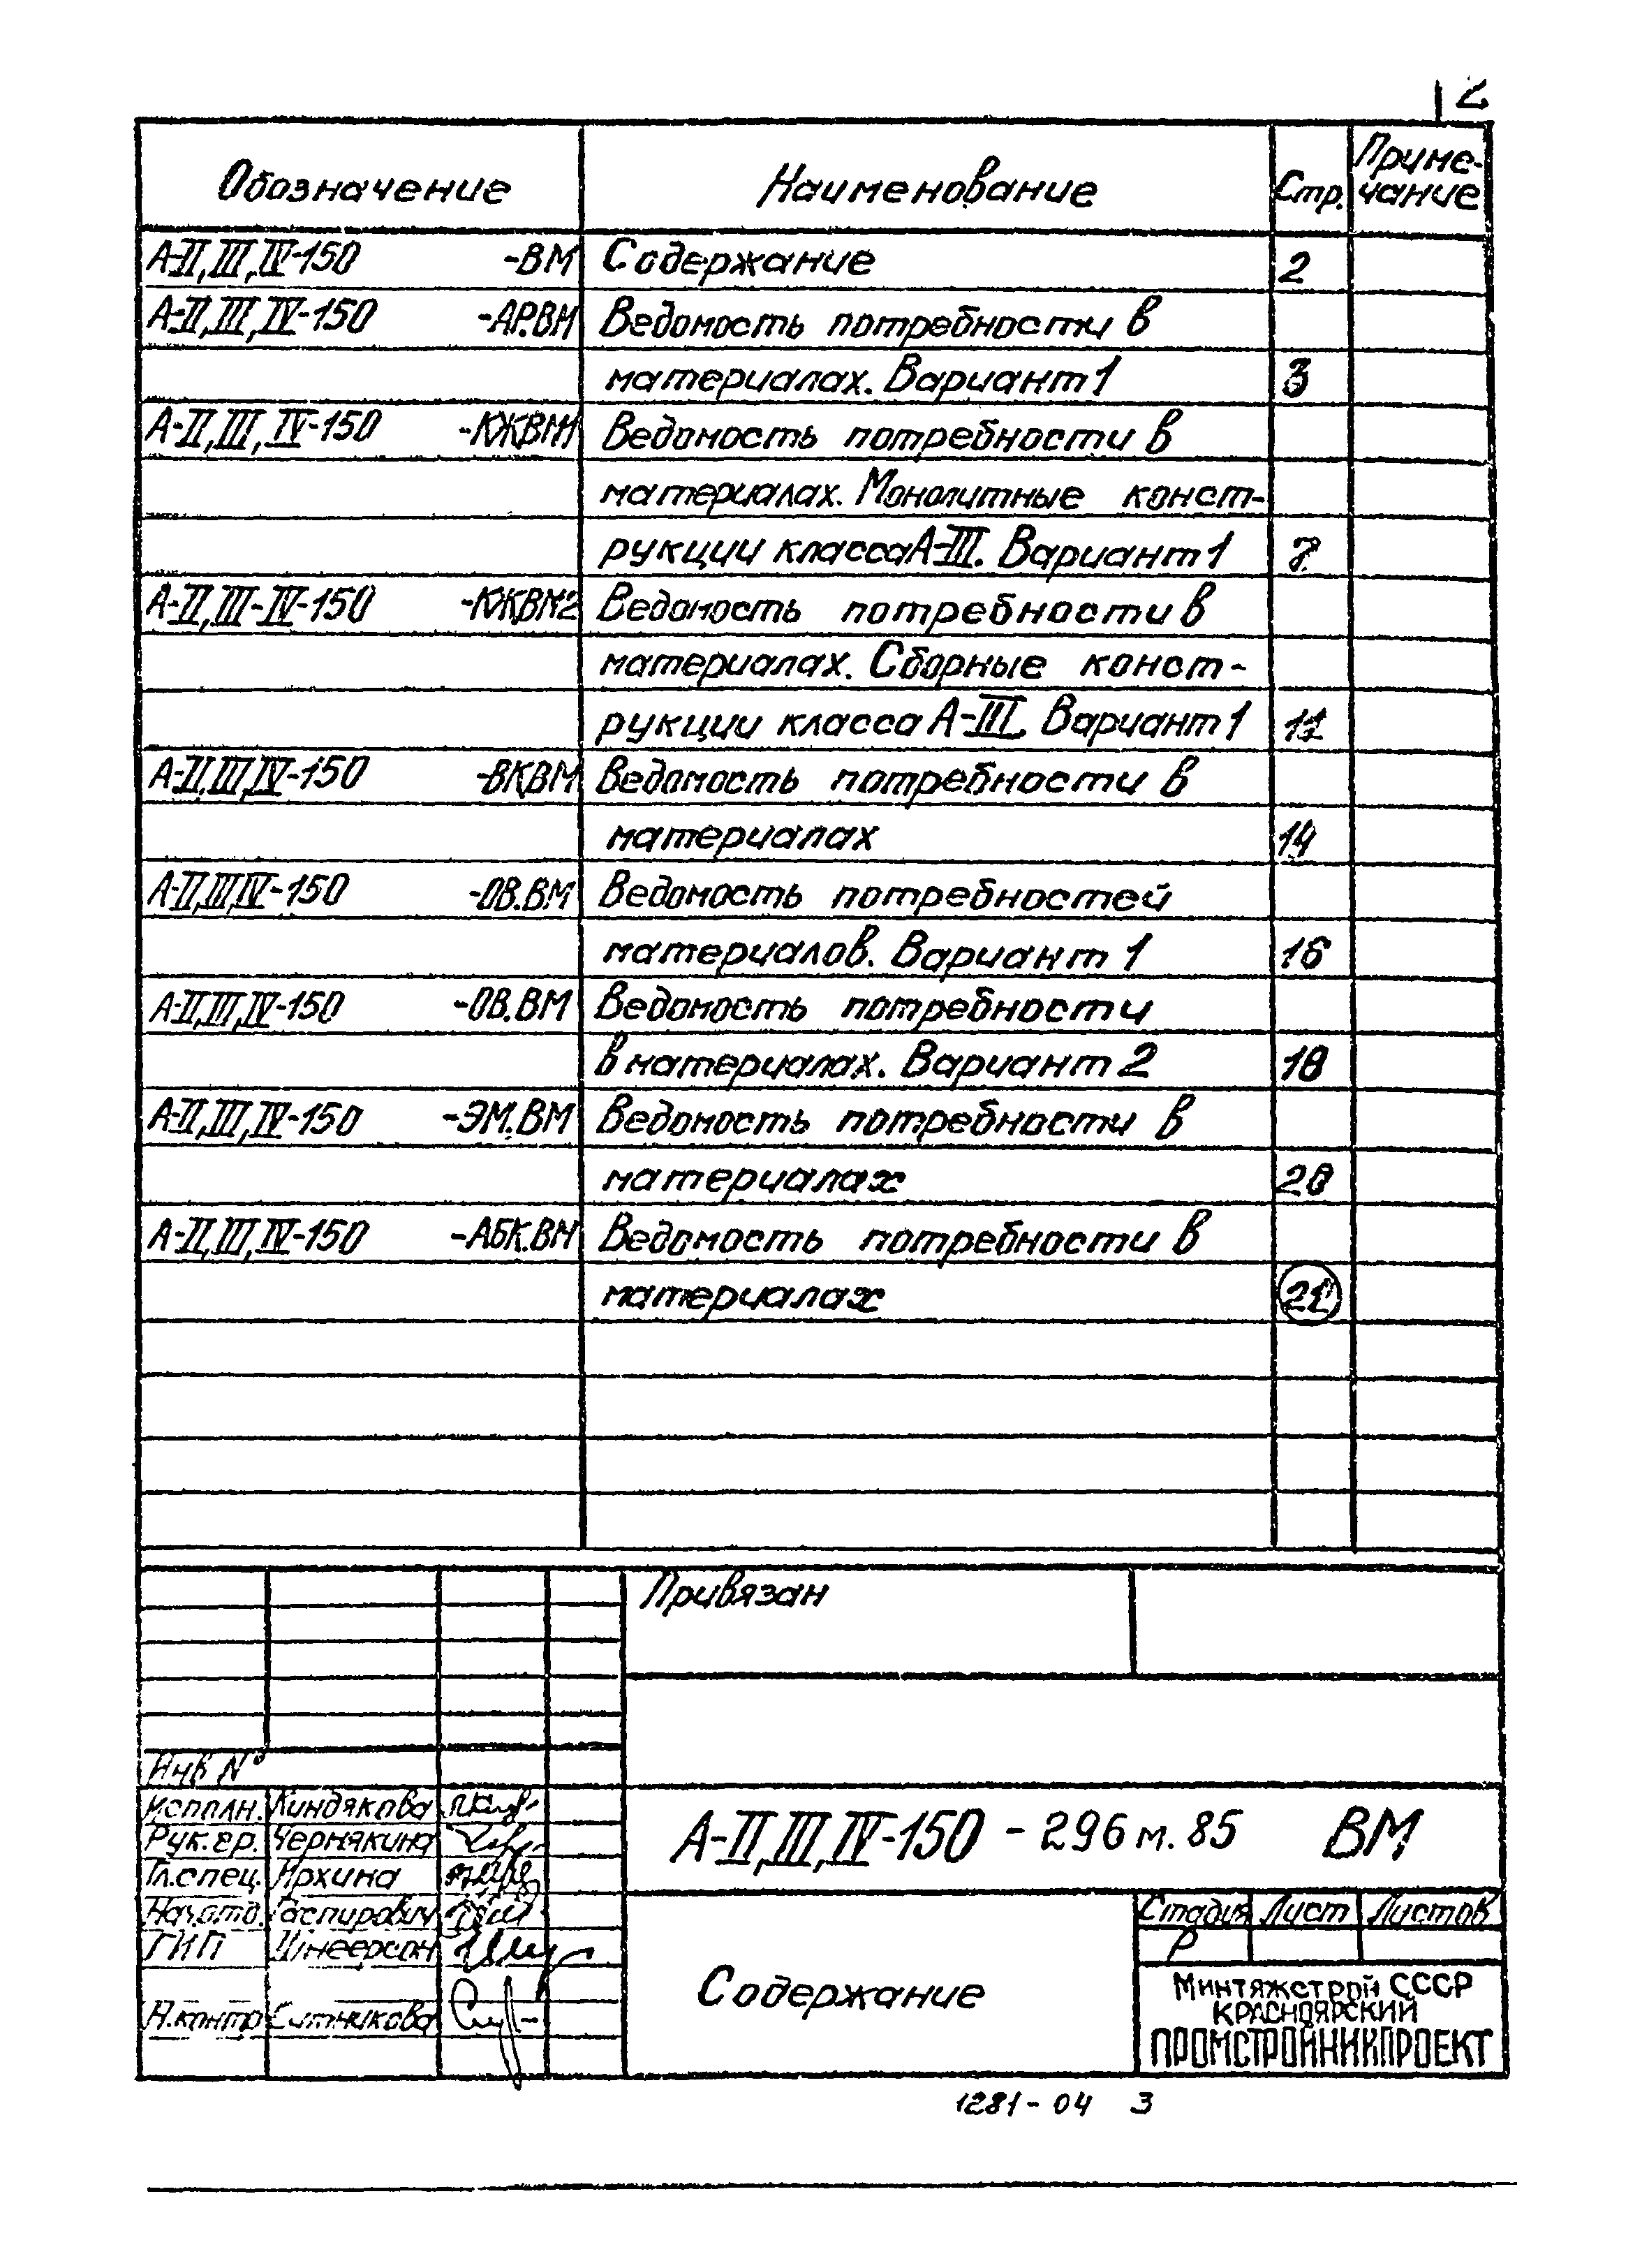 2
Обозначение Наименование Стр. Приме-
чание
А-II,III,IV-150 -ВМ Содержание 2
А-II,III,IV-150 -АР.ВМ Ведомость потребности в
материалах. Вариант 1 3
А-II,III,IV-150 -КЖВМ1 Ведомость потребности в
материалах. Монолитные конст-
рукции класса А-III. Вариант 1 7
А-II,III-IV-150 -КЖВМ2 Ведомость потребности в
материалах. Сборные конст-
рукции класса А-III. Вариант 1 11
А-II,III,IV-150 -ВКВМ Ведомость потребности в
материалах 14
А-II,III,IV-150 -ОВ.ВМ Ведомость потребностей
материалов. Вариант 1 16
А-II,III,IV-150 -ОВ.ВМ Ведомость потребности
в материалах. Вариант 2 18
А-II,III,IV-150 -ЭМ.ВМ Ведомость потребности в
материалах 20
А-II,III,IV-150 -АБК.ВМ Ведомость потребности в
материалах 21
Привязан
Инв N°
Исполн. Киндякова
Рук.гр. Чернякина
Гл.спец. Яркина
Нач.отд. Гаспирович
ГИП Шнеерсон
Н.контр Ситникова
А-II,III,IV-150 - 296 м. 85 ВМ
Содержание
Стадия Лист Листов
Р
Минтяжстрой СССР
КРАСНОЯРСКИЙ
ПРОМСТРОЙНИИПРОЕКТ
1281-04 3